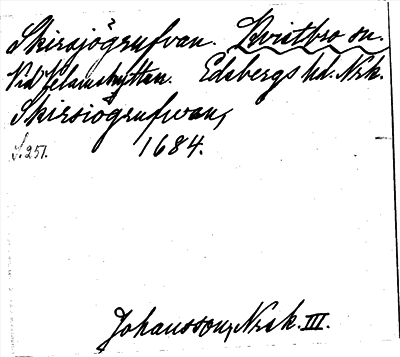 Skirsjögrufvan. Kvistbro sn.
Vid Helamshyttan. Edsbergs hd. Nrk.
Skirsiögrufwan,
S. 251. 1684.
Johansson, Nrsk. III.